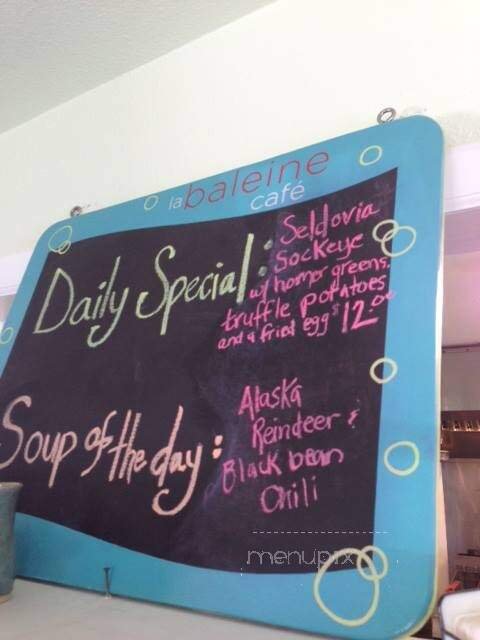 la baleine
café
Daily Special:
Seldovia
Sockeye
w/ homer greens,
truffle potatoes
and a fried egg $12.00
Soup of the day:
Alaska
Reindeer &
Black bean
Chili
menupix